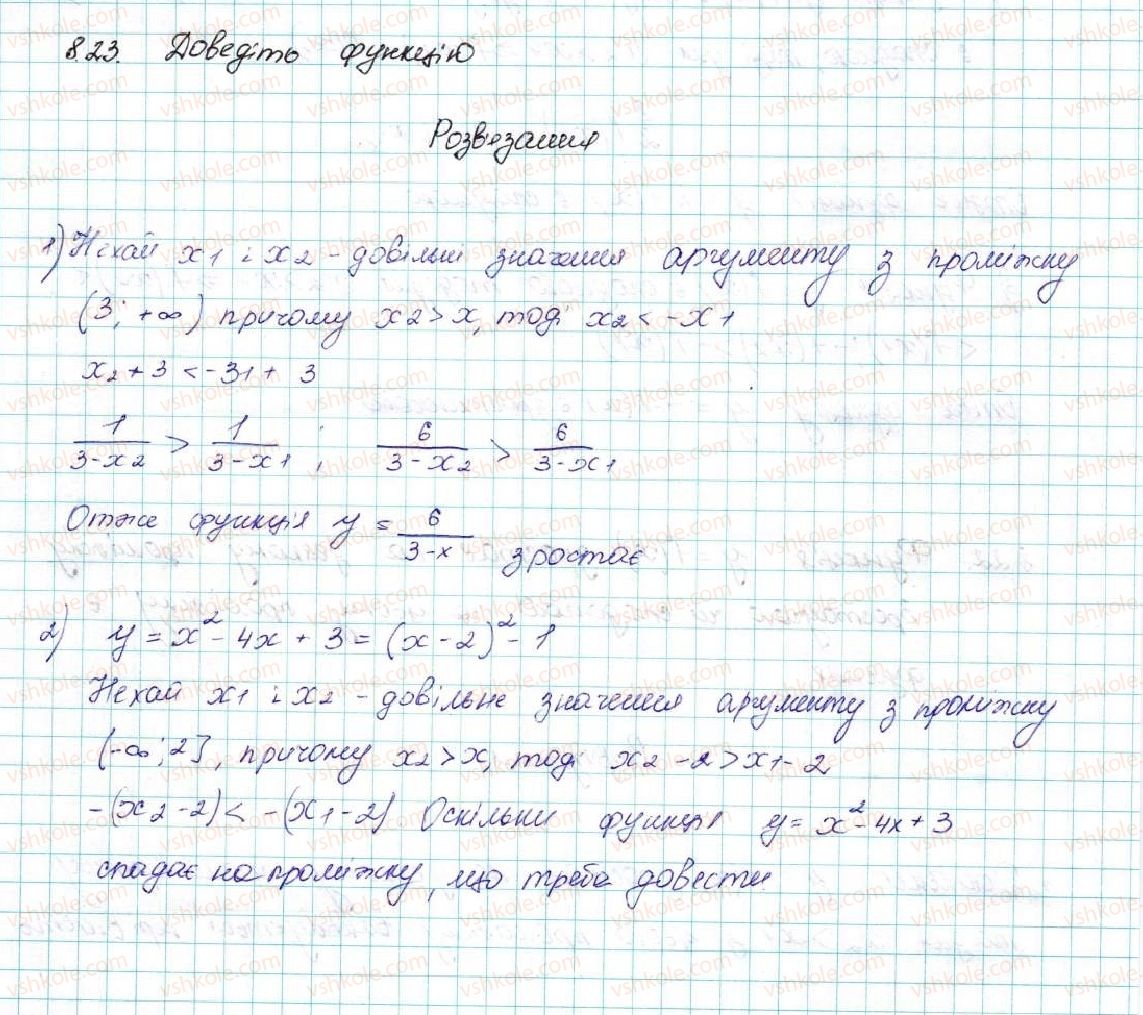 8.23. Доведіть функцію
Розв'язання
1) Нехай x1 і x2 - довільні значення аргументу з проміжку
(3; +∞) причому x2 > x, тоді x2 < -x1
x2 + 3 < -31 + 3
1/(3-x2) > 1/(3-x1); 6/(3-x2) > 6/(3-x1)
Отже функція y = 6/(3-x) зростає
2) y = x² - 4x + 3 = (x - 2)² - 1
Нехай x1 і x2 - довільне значення аргументу з проміжку
(-∞; 2], причому x2 > x, тоді x2 - 2 > x1 - 2
-(x2 - 2) < -(x1 - 2) Оскільки функція y = x² - 4x + 3
спадає на проміжку, що треба довести
vshkole.com